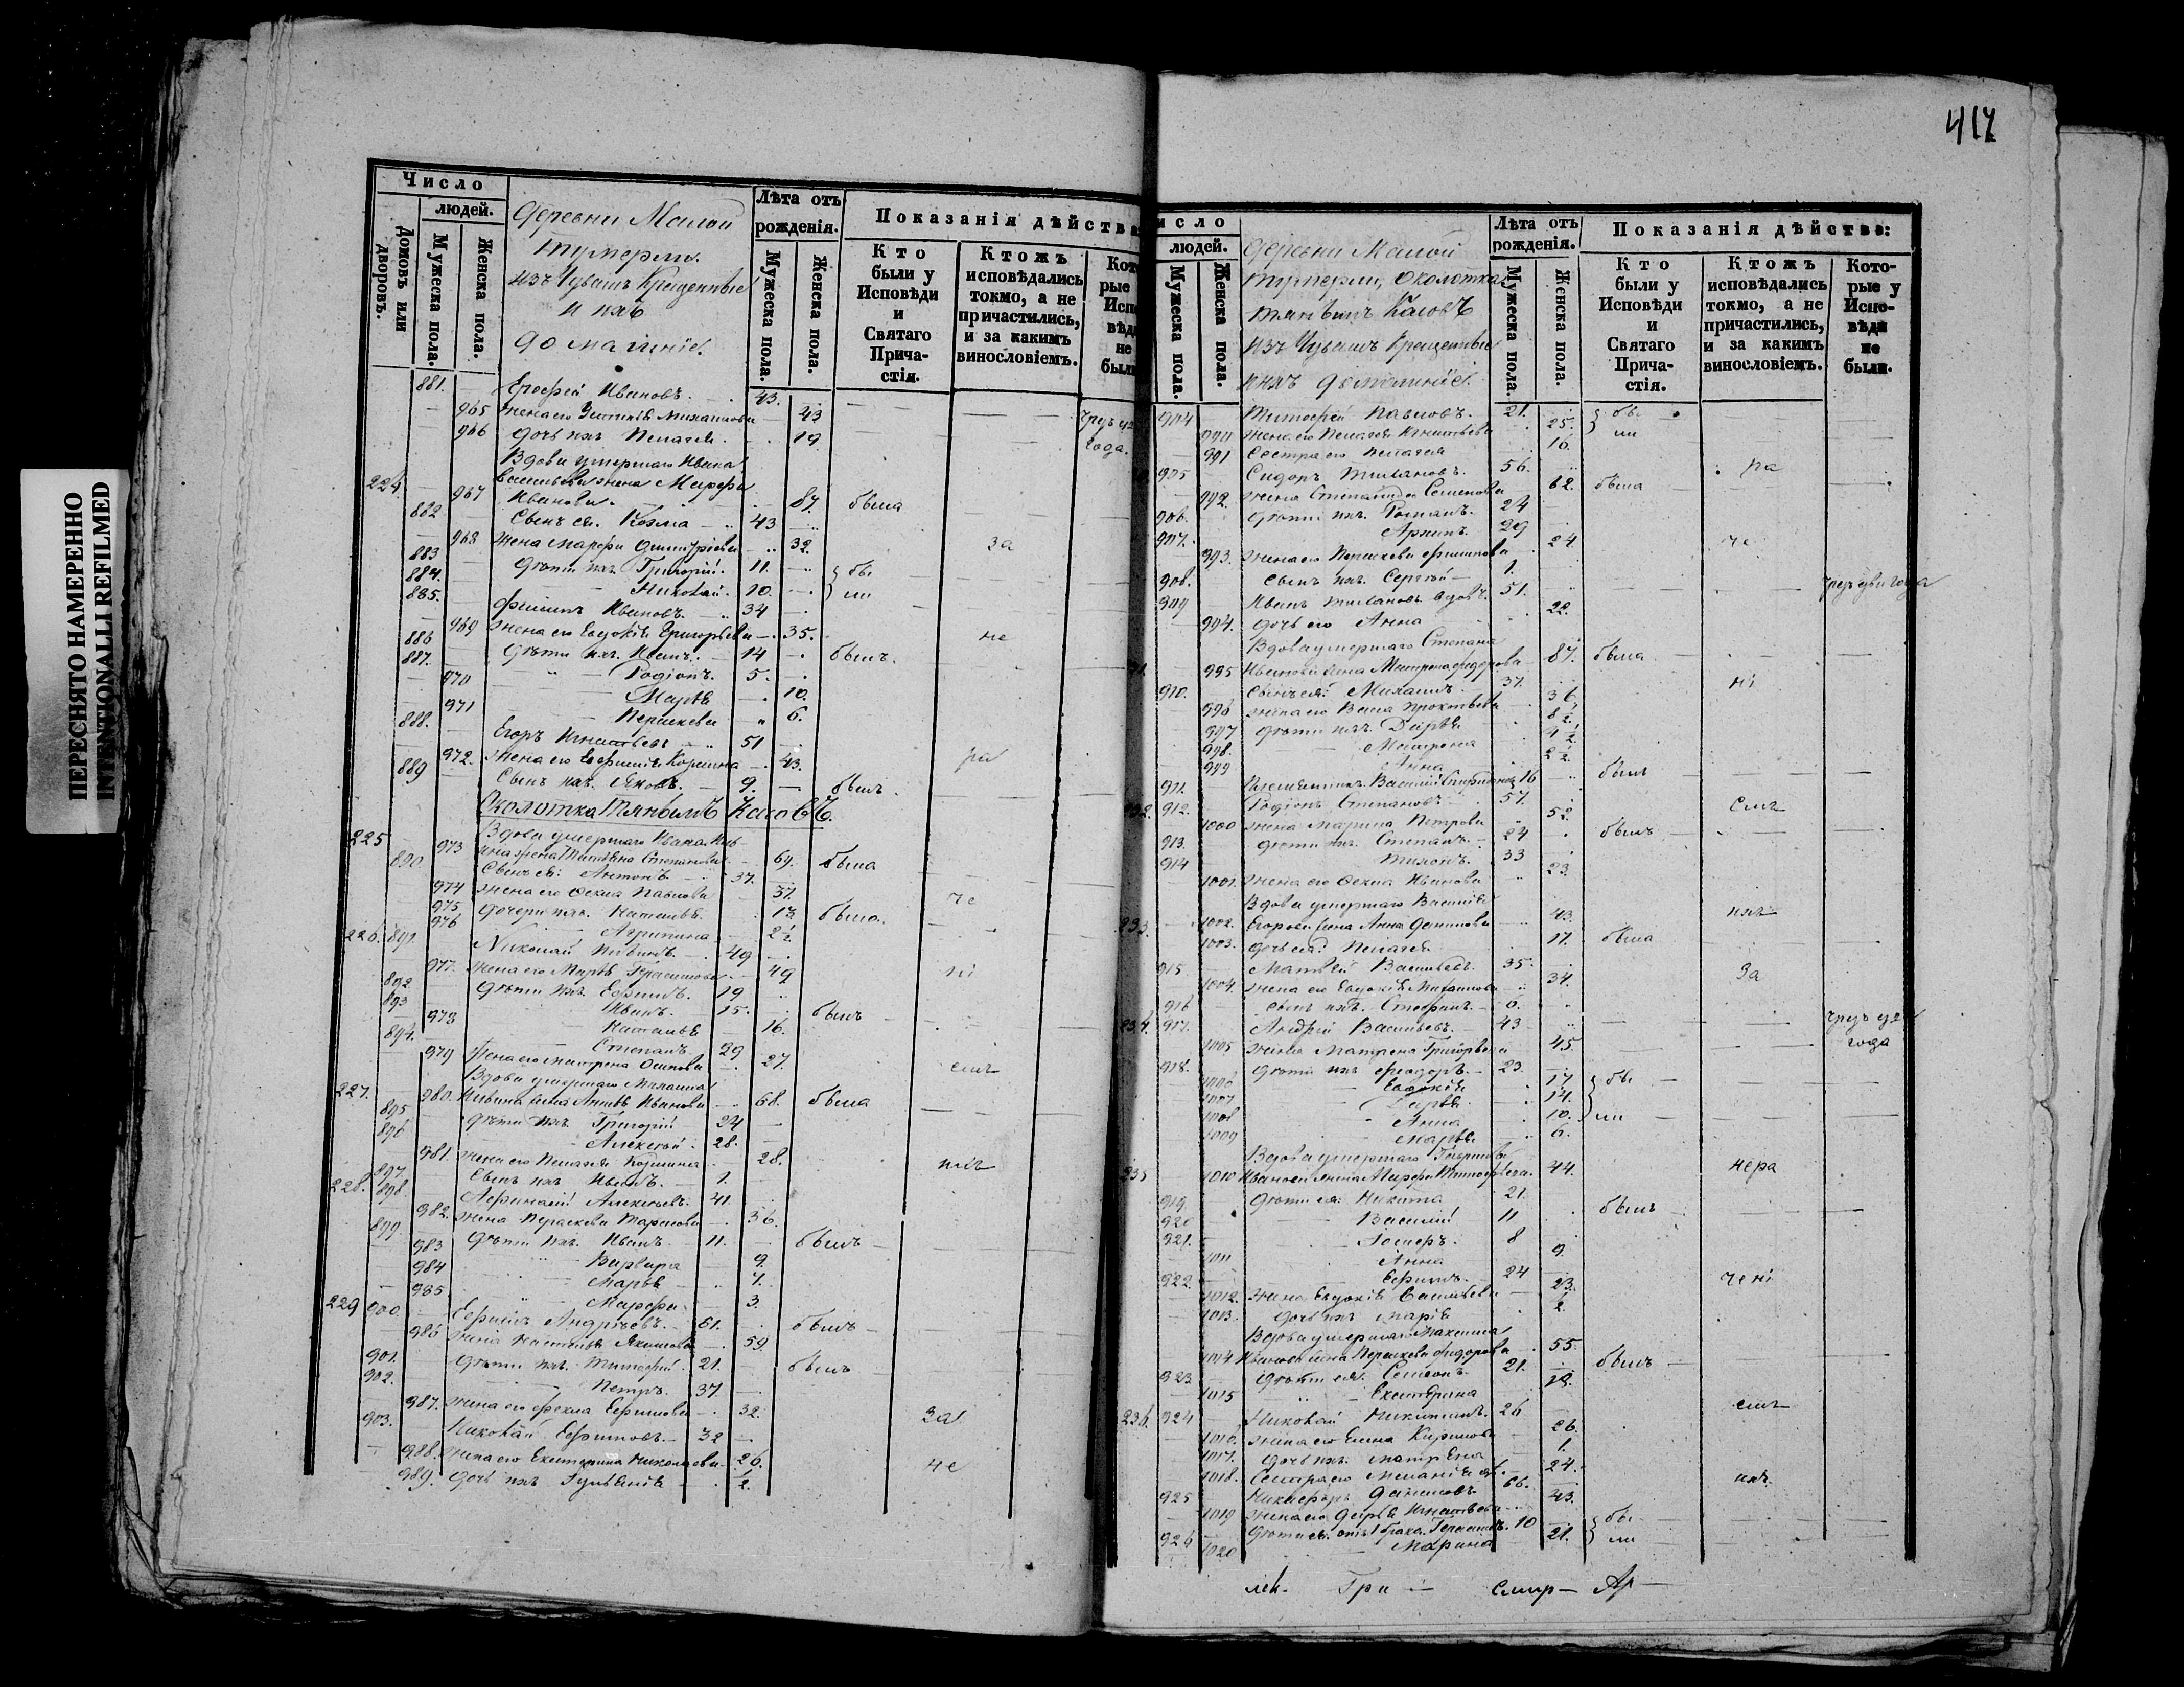 417
ПЕРЕСНЯТО НАМЕРЕННО
INTENTIONALLI REFILMED
Число
людей.
Домовъ или дворовъ.
Мужеска пола.
Женска пола.
Деревни Малой
Тумерли
Изъ Чувашъ Крещенные
и ихъ
домашніе.
Лѣта отъ
рожденія.
Мужеска пола.
Женска пола.
Показанія дѣйства
Кто
были у
Исповѣди
и
Святаго
Прича-
стія.
Ктожъ
исповѣдались
токмо, а не
причастились,
и за какимъ
винословіемъ.
881. Ерофей Ивановъ. 43.
965 жена его Михаилова 43
966 дочь ихъ Пелагея 19 года.
Вдова умершаго Ивана
224. Васильева жена Марфа
967 Иванова 87. была
882 Сынъ ея Козма 43
968 Жена Марфа Димитріева 32. за
883 Дѣти ихъ Григорій. 11. бы
884. Николай. 10. ли
885. Филипъ Ивановъ 34
969 Жена его Евдокія Григорьева 35. не
886 Дѣти ихъ Иванъ. 14 былъ.
887. Родіонъ. 5.
970 Марѳа 10.
971 Параскева 6.
888. Егоръ Игнатьевъ 51
972. Жена его 43. ра
889 Сынъ ихъ Яковъ. 9. былъ.
Околотка Тянвинъ Касовъ.
225 Вдова умершаго Ивана
973 жена Степанова 69. была
890 Сынъ ея Антонъ 37.
974 Жена его Ѳекла Павлова 37. че
975 Дочери ихъ Наталья. 13 была.
976 Агрипина 2½
226. 891. Николай 49
977. Жена его Марья Герасимова 49 ні
892 Дѣти ихъ Ефимъ. 19
893 Иванъ. 15. былъ
978 Наталья 16.
894. Степанъ 29
979 Жена его Матрена Осипова 27. емъ
Вдова умершаго Михаила
227. 980. Анна Иванова 68. была
895 Дѣти ихъ Григорій 34
896 Алексѣй. 28.
981. Жена его Пелагея 28. ніи
897. Сынъ ихъ Иванъ. 1.
228. 898. Афанасій Алексѣевъ. 41.
982. Жена Параскева 36.
899 Дѣти ихъ Иванъ 11. былъ
983 Варвара 9.
984 Марья 7.
985 Марфа 3.
229 900. Ефимъ Андреевъ. 61. былъ
986 Жена Наталья 59
901. Дѣти ихъ Тимофей. 21. былъ
902. Петръ. 37.
987. Жена его Фекла Ефимова 32. за
903. Николай Ефимовъ 32
988. Жена его Екатерина Николаева 26. не
989. Дочь ихъ ½.
людей.
Мужеска пола.
Женска пола.
Деревни Малой
Тумерли, Околотка
Тянвинъ Касовъ
Изъ Чувашъ Крещенные
и ихъ домашніе.
Лѣта отъ
рожденія.
Мужеска пола.
Женска пола.
Показанія дѣйства:
Кто
были у
Исповѣди
и
Святаго
Прича-
стія.
Ктожъ
исповѣдались
токмо, а не
причастились,
и за какимъ
винословіемъ.
Кото-
рые у
Испо-
вѣди
не
были.
904 Тимофей Павловъ. 21. бы
990 Жена его Пелагея Игнатьева 25. ли
991 Сестра его Пелагея 16.
905 Сидоръ 56. ра
992. Жена Степанида Семенова 62. была
906. Дѣти ихъ Романъ. 24
907. Архипъ. 29
993. Жена его Параскева Филипова 24. че
908. Сынъ ихъ Сергѣй 1.
909 Иванъ вдовъ. 51. чрезъ два года
994. дочь его Анна 22.
Вдова умершаго Степана
995 Иванова жена Матрена Федорова 87. была
910. Сынъ ея Михаилъ. 37. ні
996 Жена его Васса Прокопьева 36
997 Дѣти ихъ Дарья 8½
998. Матрена 4½
999 Анна 2½
911. Племянникъ Василій 16 былъ
232. 912. Родіонъ Степановъ 57. емъ
1000 Жена Марина Петрова 52.
913. Дѣти ихъ Степанъ 24 былъ
914 33
1001. Жена его Ѳекла Иванова 23.
Вдова умершаго Василія
233. 1002. Егорова жена Анна 43. ихъ
1003. Дочь ея Пелагея 17. была
915 Матвей Васильевъ. 35.
1004. Жена его Евдокія 34. За
916 сынъ ихъ 6.
234. 917. Андрей Васильевъ. 43 чрезъ два
1005 Жена Матрена Григорьева 45. года
918. Дѣти ихъ Ѳеодоръ 23.
1006 Евдокія 17. бы
1007 Дарья 14.
1008 Анна 10. ли
1009 Марья 6.
Вдова умершаго
235 1010 Иванова жена Марфа Тимофеева. 44. нера
919. Дѣти ея Никита 21.
920 Василій 11 былъ
921. 8
1011 Анна 9.
922. Ефимъ. 24 чені
1012. Жена Евдокія Васильева 23.
1013. дочь ихъ Марія ½.
Вдова умершаго Максима
1014 Иванова жена Параскева Федорова 55.
923 Дѣти ея Семенъ. 21. былъ
1015 Екатерина 19.
236. 924 Николай Никитинъ. 26 емъ
1016. Жена его Елена 26.
1017. дочь ихъ Матрена 1.
1018. Сестра его 24.
925 Никифоръ Даниловъ 66. ихъ
1019 Жена его Дарья Игнатьева 43.
926 Дѣти ея отъ 1 брака 10 бы
1020 Марина 21. ли